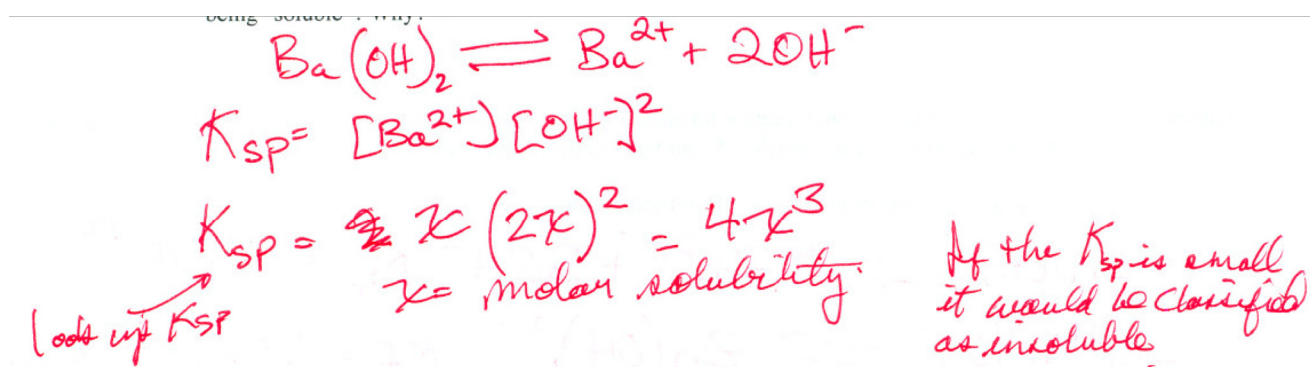 being "soluble". Why?
Ba(OH)₂ ⇌ Ba²⁺ + 2OH⁻
Ksp = [Ba²⁺][OH⁻]²
Ksp = x(2x)² = 4x³
x = molar solubility.
look up Ksp
If the Ksp is small
it would be classified
as insoluble